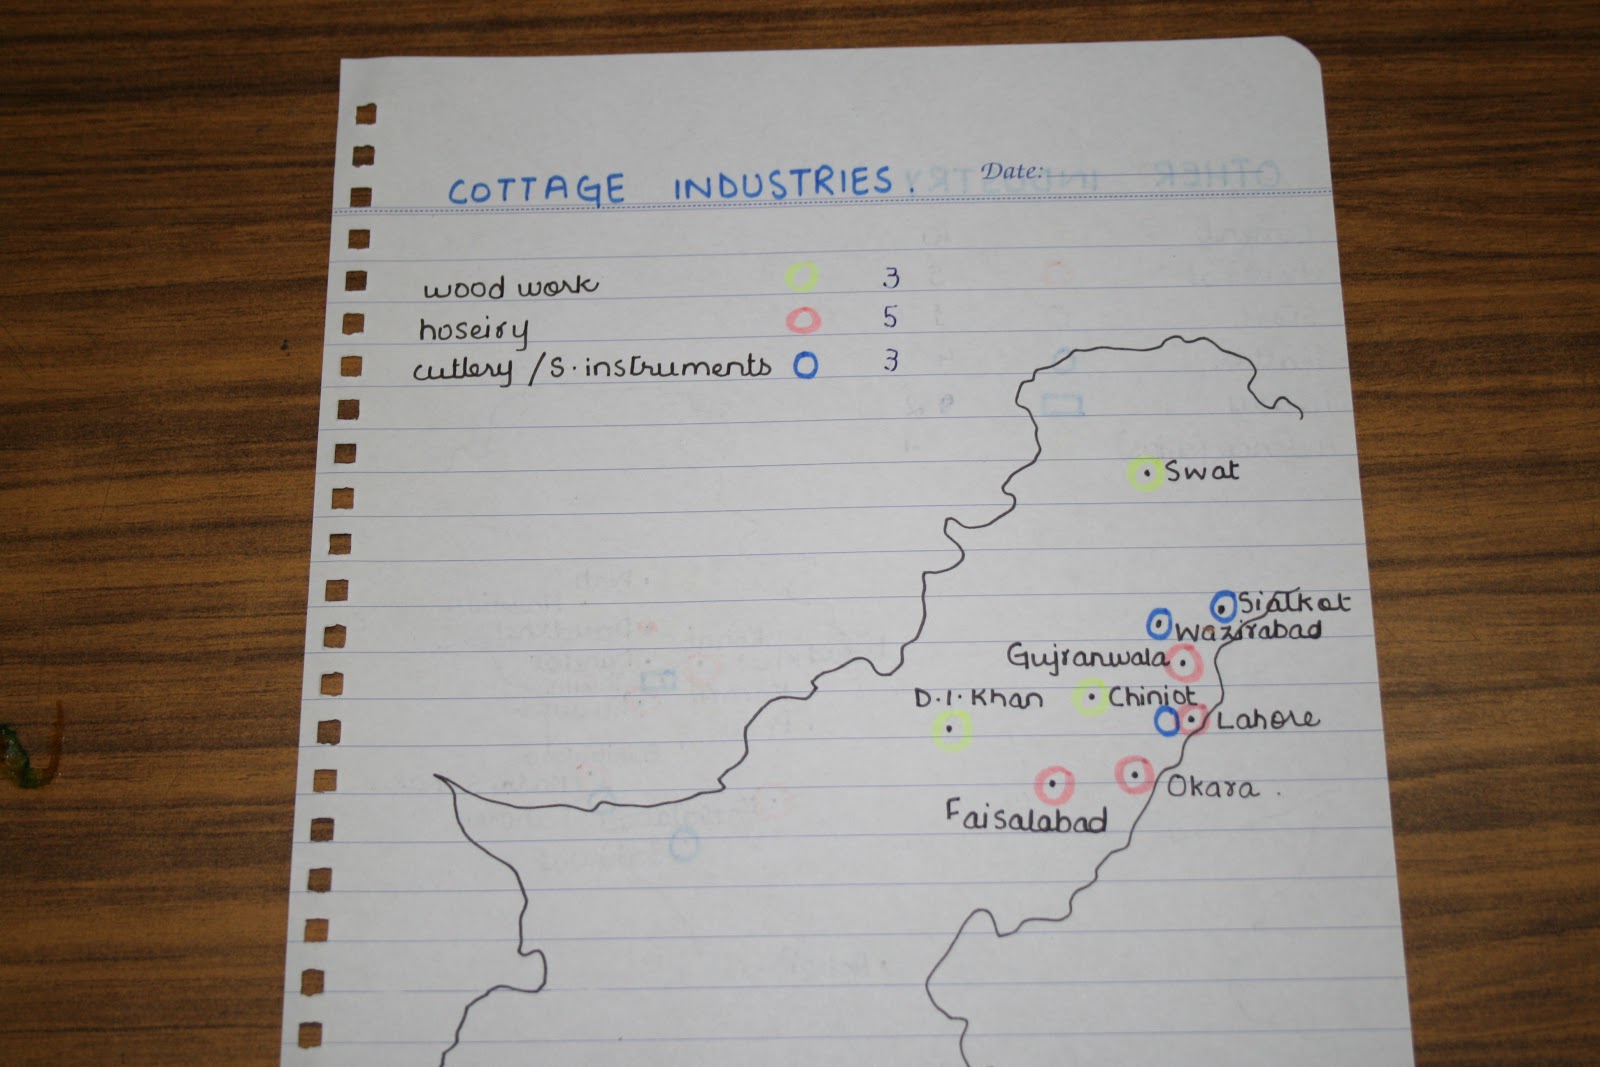 COTTAGE INDUSTRIES.
Date:
wood work 3
hoseiry 5
cutlery / S. instruments 3
Swat
Sialkot
Wazirabad
Gujranwala
D.I. Khan
Chiniot
Lahore
Okara.
Faisalabad